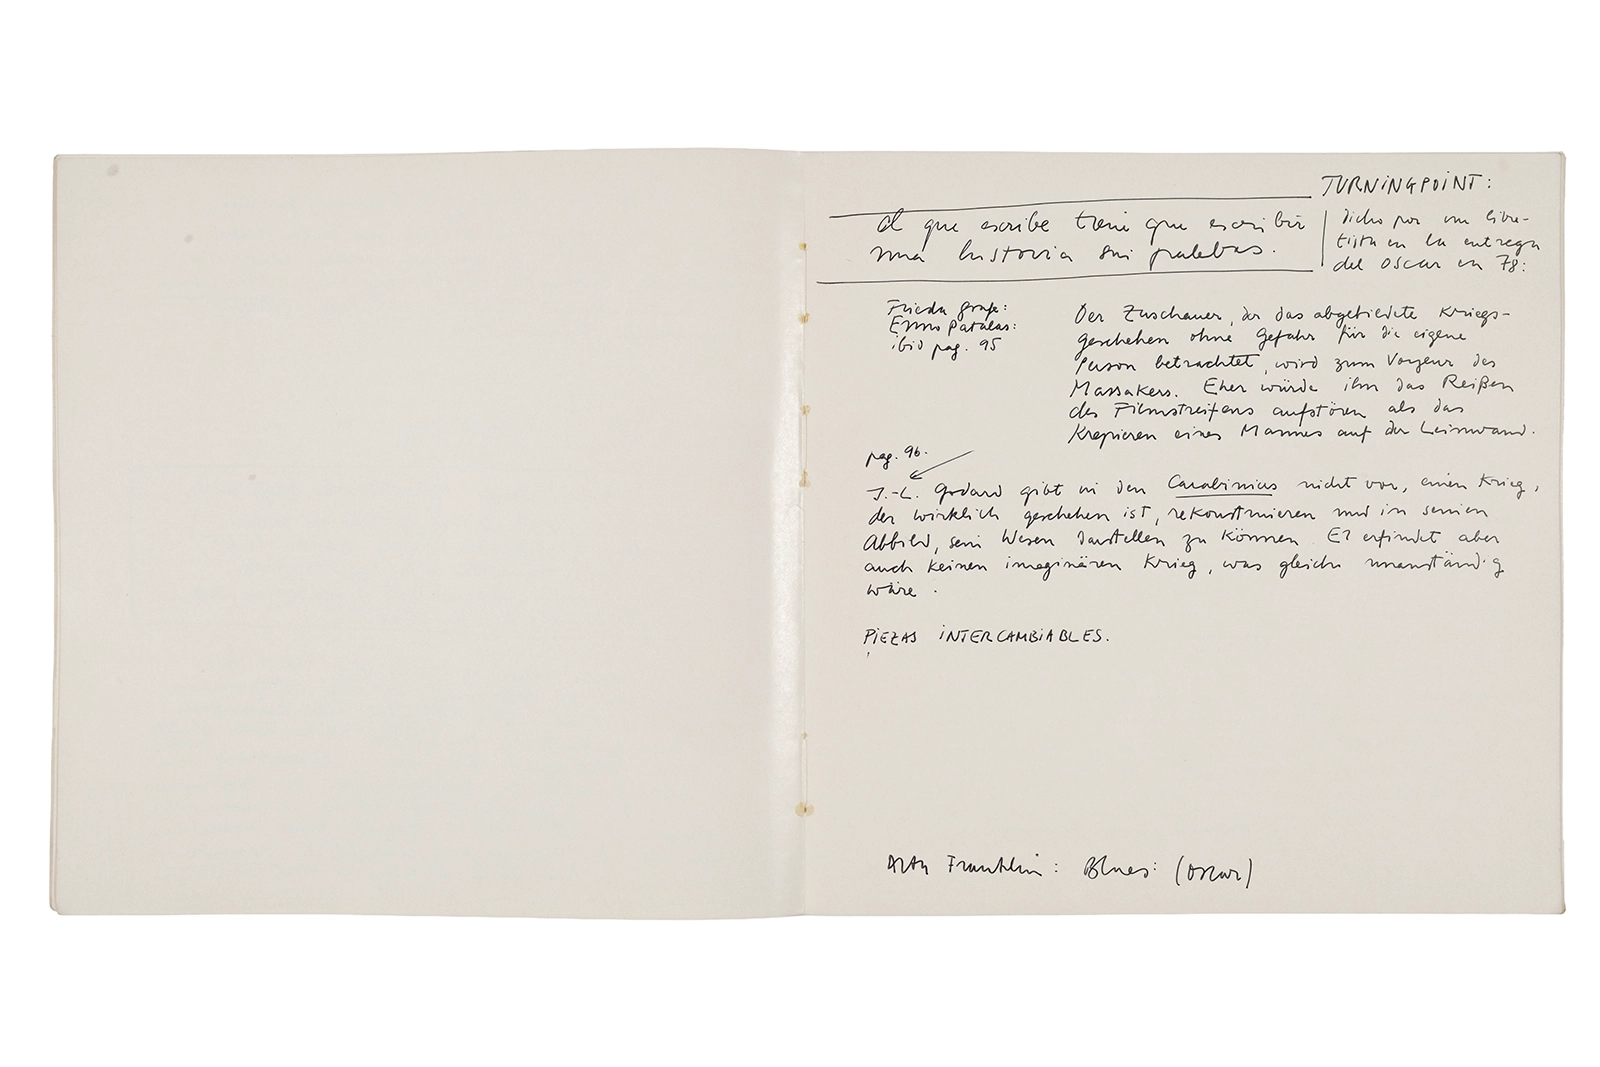 TURNINGPOINT:
el que escribe tiene que escribir
una historia sin palabras.
dicho por un libre-
tista en la entrega
del OSCAR en 78:
Frieda Grafe:
Enno Patalas:
ibid pag. 95
Der Zuschauer, der das abgebildete Kriegs-
geschehen ohne Gefahr für die eigene
Person betrachtet, wird zum Voyeur des
Massakers. Eher würde ihn das Reißen
des Filmstreifens aufstören als das
Krepieren eines Mannes auf der Leinwand.
pag. 96.
J.-L. Godard gibt in den Carabiniers nicht vor, einen Krieg,
der wirklich geschehen ist, rekonstruieren und in seinem
Abbild, sein Wesen darstellen zu können. Er erfindet aber
auch keinen imaginären Krieg, was gleich unanständig
wäre.
PIEZAS INTERCAMBIABLES.
Franklin: Blues: (Oscar)